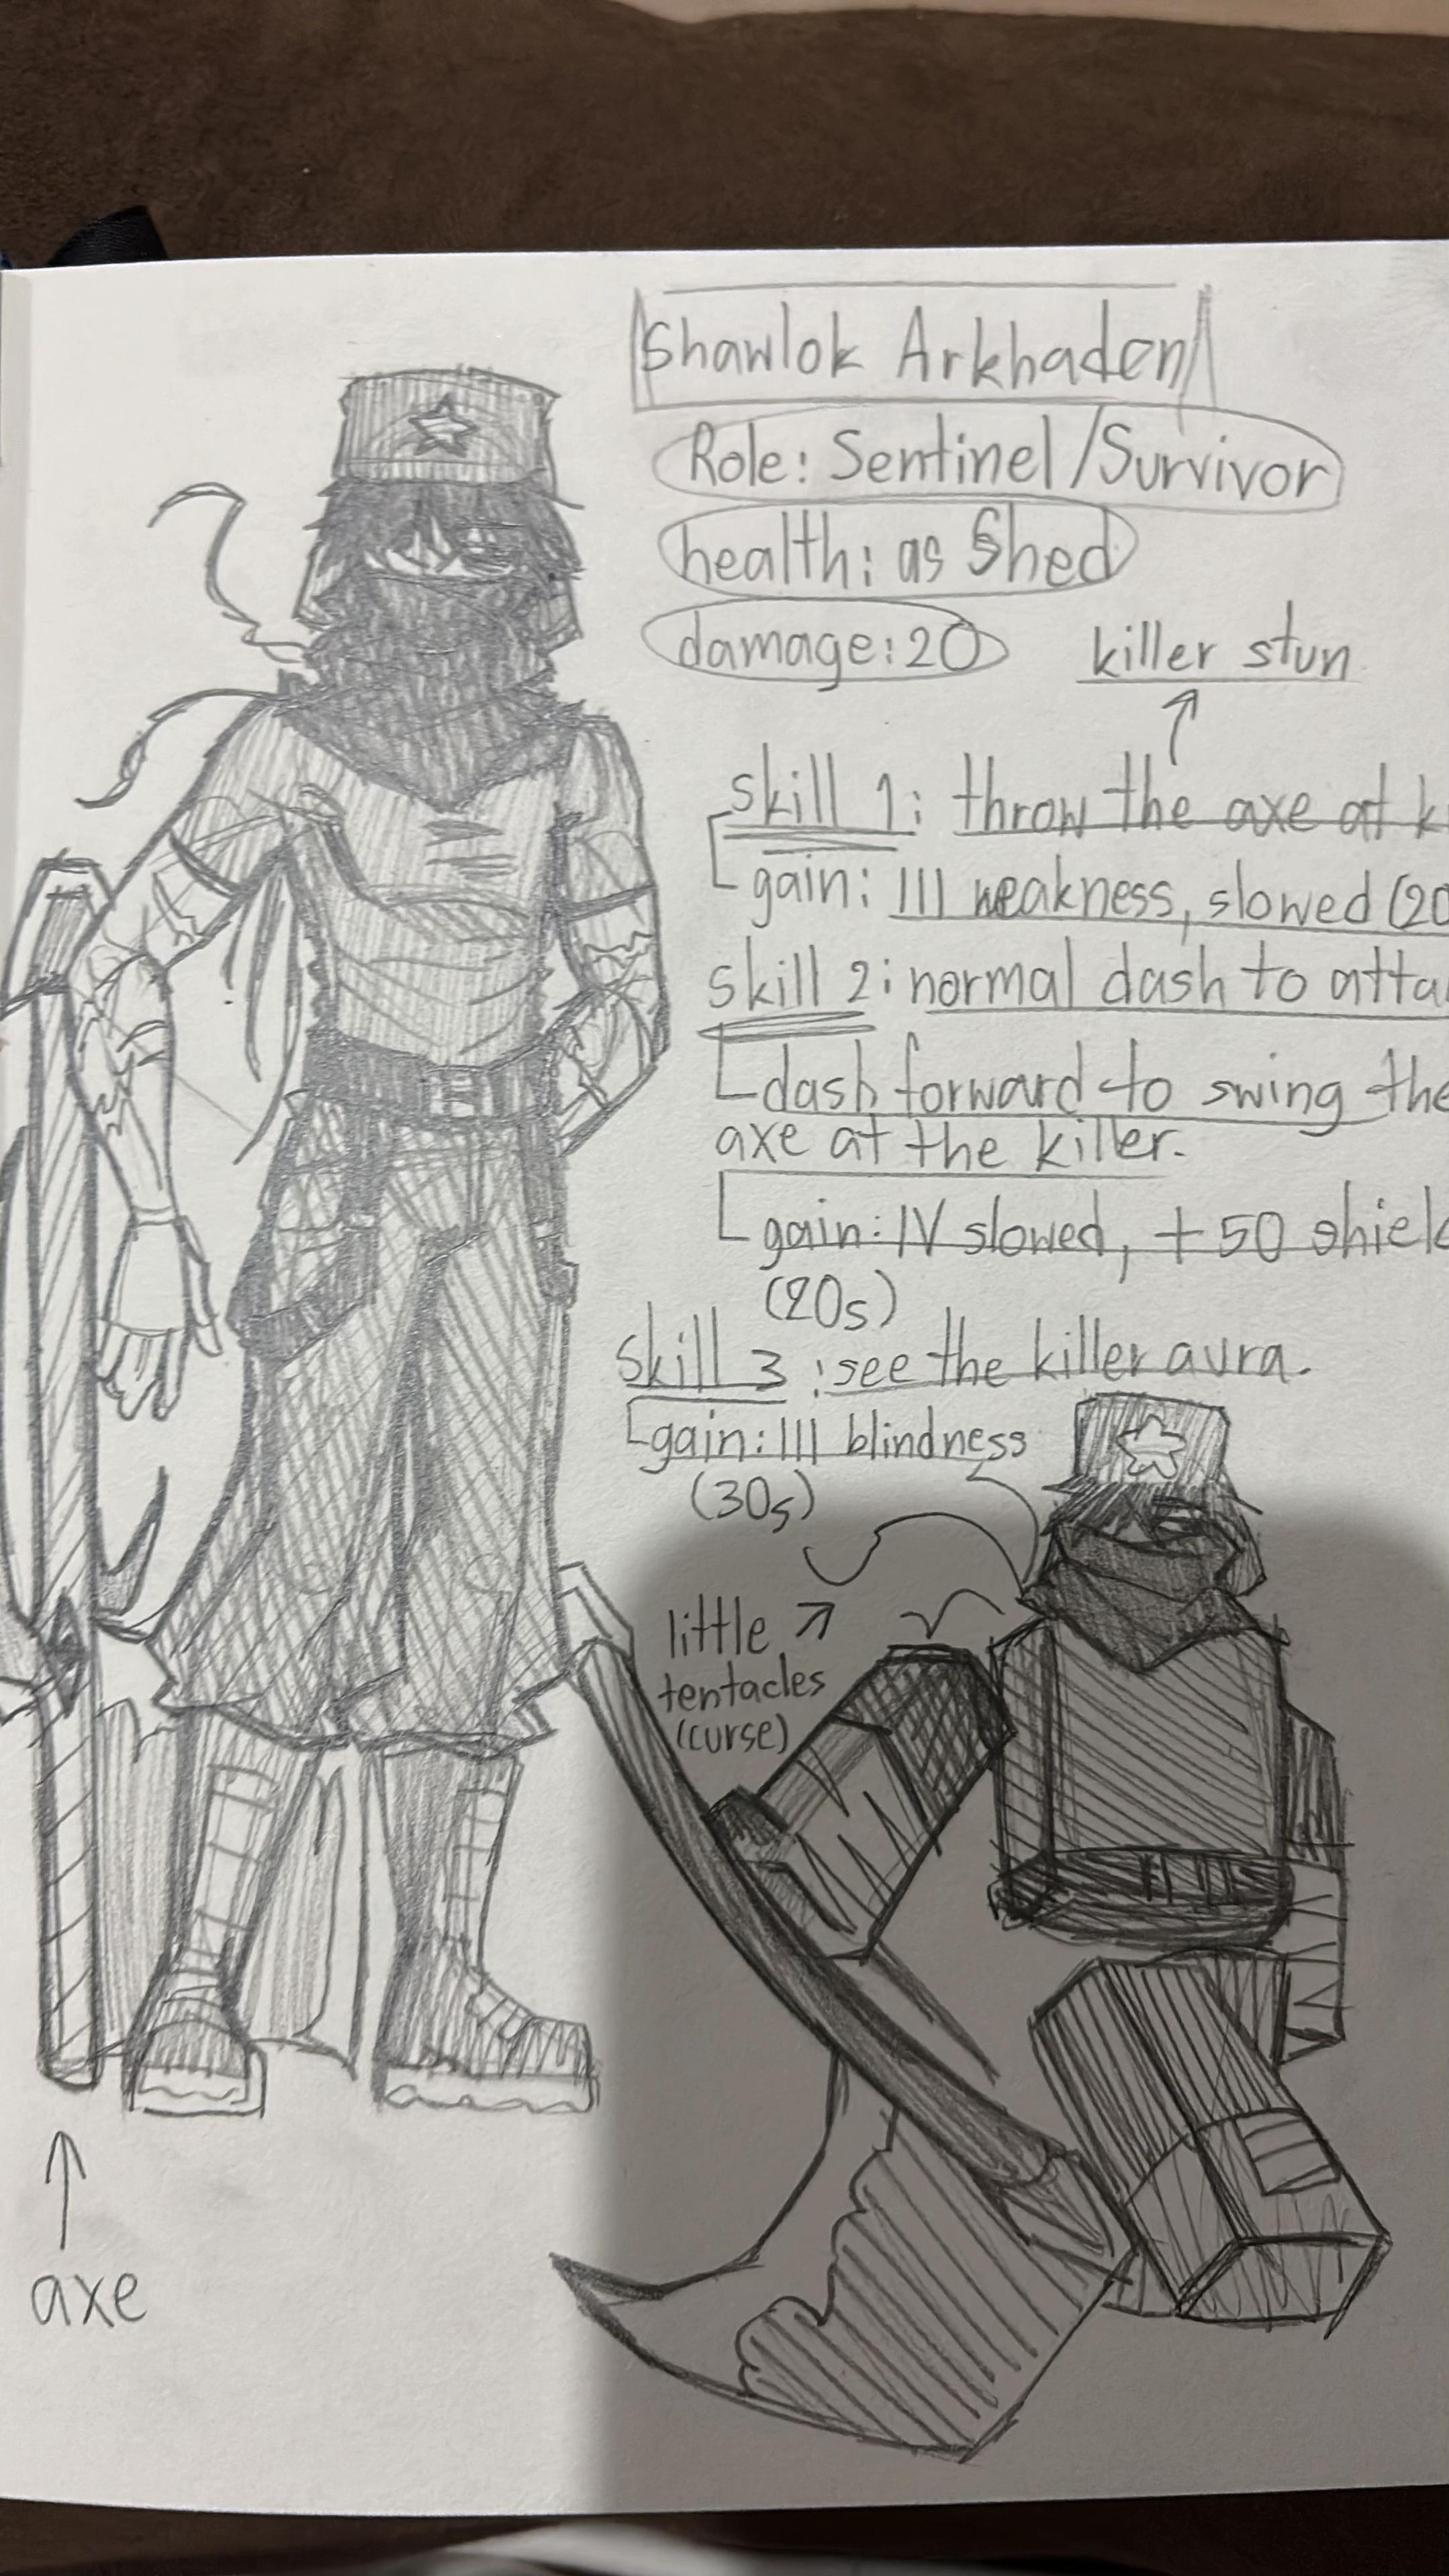 Shawlok Arkhaden
Role: Sentinel/Survivor
health: as Shed
damage: 20
killer stun
skill 1: throw the axe at k
gain: III weakness, slowed (20
skill 2: normal dash to atta
dash forward to swing the
axe at the killer.
gain: IV slowed, +50 shiel
(20s)
skill 3: see the killer aura.
gain: III blindness
(30s)
little
tentacles
(curse)
axe